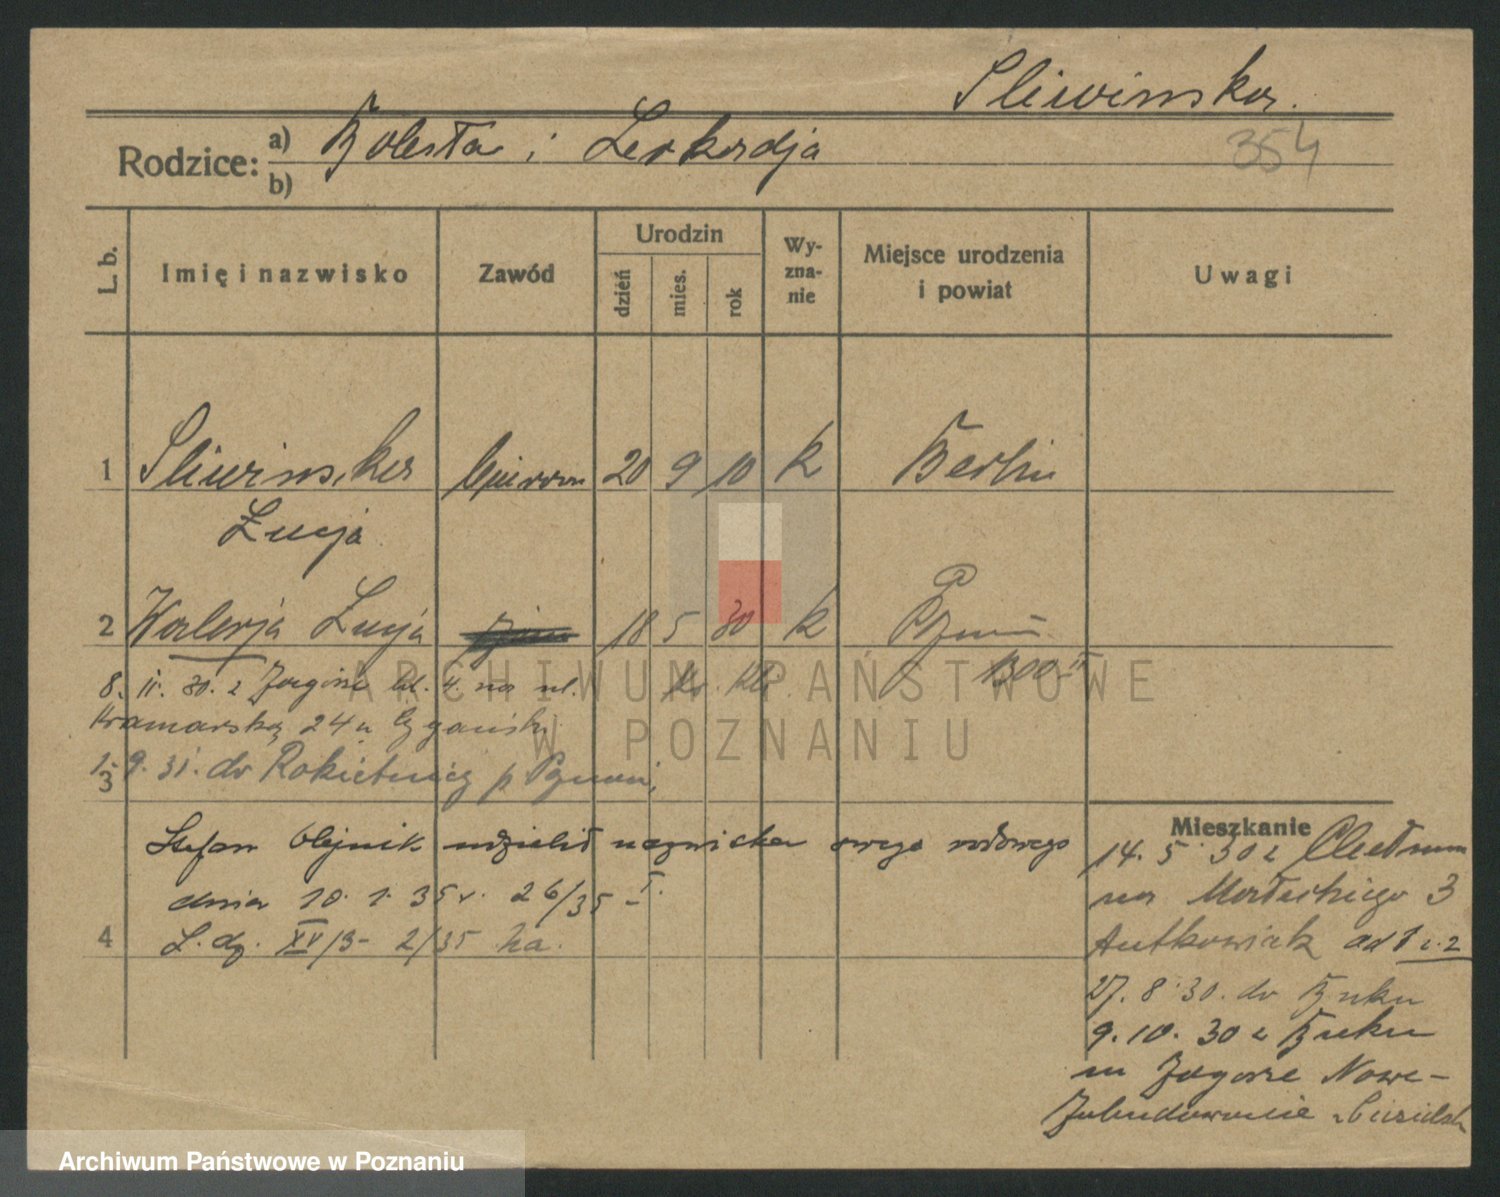 Sliwinska.
Rodzice: a) Bolesła i Leokadja
b)
354
L. b.
Imię i nazwisko
Zawód
Urodzin
dzień
mies.
rok
Wy-
zna-
nie
Miejsce urodzenia
i powiat
Uwagi
1 Sliwinska 20 9 10 k Berlin
Łucja
2 Walerja Łucja 18 5 30 k
1300
8. 11. 30. z Zagórze 4. na ul.
Kramarską 24 u
1. 9. 31. do Rokietnicy p
3
Stefan Olejnik udzielił nazwiska swego rodowego
dnia 10. 1. 35 r. 26/35
4 L. dz. XV/3- 2/35
Mieszkanie
14. 5. 30 z
na Małeckiego 3
Antkowiak ad 1 i 2
27. 8. 30. do Buku
9. 10. 30 z Buku
na Zagórze Nowe-
Zabudowanie
ARCHIWUM PAŃSTWOWE
W POZNANIU
Archiwum Państwowe w Poznaniu